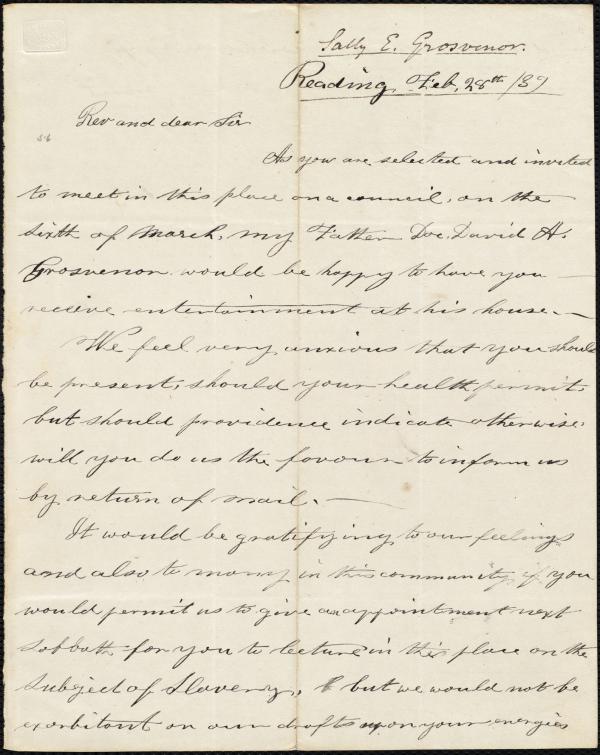 Sally E. Grosvenor.
Reading, Feb, 28th /39
Rev and dear Sir
As you are selected and invited
to meet in this place on a council, on the
sixth of March, my Father Doc. David A.
Grosvenor would be happy to have you
receive entertainment at his house.—
We feel very anxious that you should
be present, should your health permit,
but should providence indicate otherwise.
will you do us the favour to inform us
by return of mail.—
It would be gratifying to our feelings
and also to many in this community, if you
would permit us to give an appointment next
Sabbath for you to lecture in this place on the
subject of Slavery, but we would not be
exorbitant on our drafts upon your energies